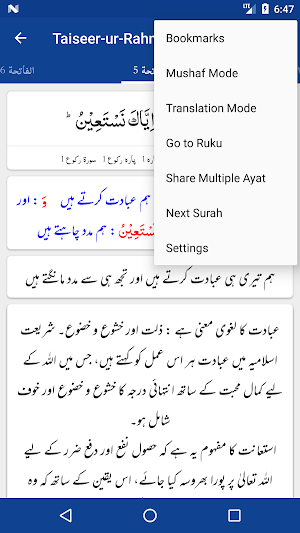 6:47
Taiseer-ur-Rahm
الفاتحة 6
تحة 5
Bookmarks
Mushaf Mode
Translation Mode
Go to Ruku
Share Multiple Ayat
Next Surah
Settings
اِيَّاكَ نَسۡتَعِيۡنُ ؕ
پارہ رکوع 1 سورۃ رکوع 1
ہم عبادت کرتے ہیں وَ : اور
سْتَعِيْنُ : ہم مدد چاہتے ہیں
ہم تیری ہی عبادت کرتے ہیں اور تجھ ہی سے مدد مانگتے ہیں
عبادت کا لغوی معنی ہے : ذلت اور خشوع و خضوع۔ شریعت
اسلامیہ میں عبادت ہر اس عمل کو کہتے ہیں، جس میں اللہ کے
لیے کمال محبت کے ساتھ انتہائی درجہ کا خشوع و خضوع اور خوف
شامل ہو۔
استعانت کا مفہوم یہ ہے کہ حصول نفع اور دفع ضرر کے لیے
اللہ تعالیٰ پر پورا بھروسہ کیا جائے، اس یقین کے ساتھ کہ وہ